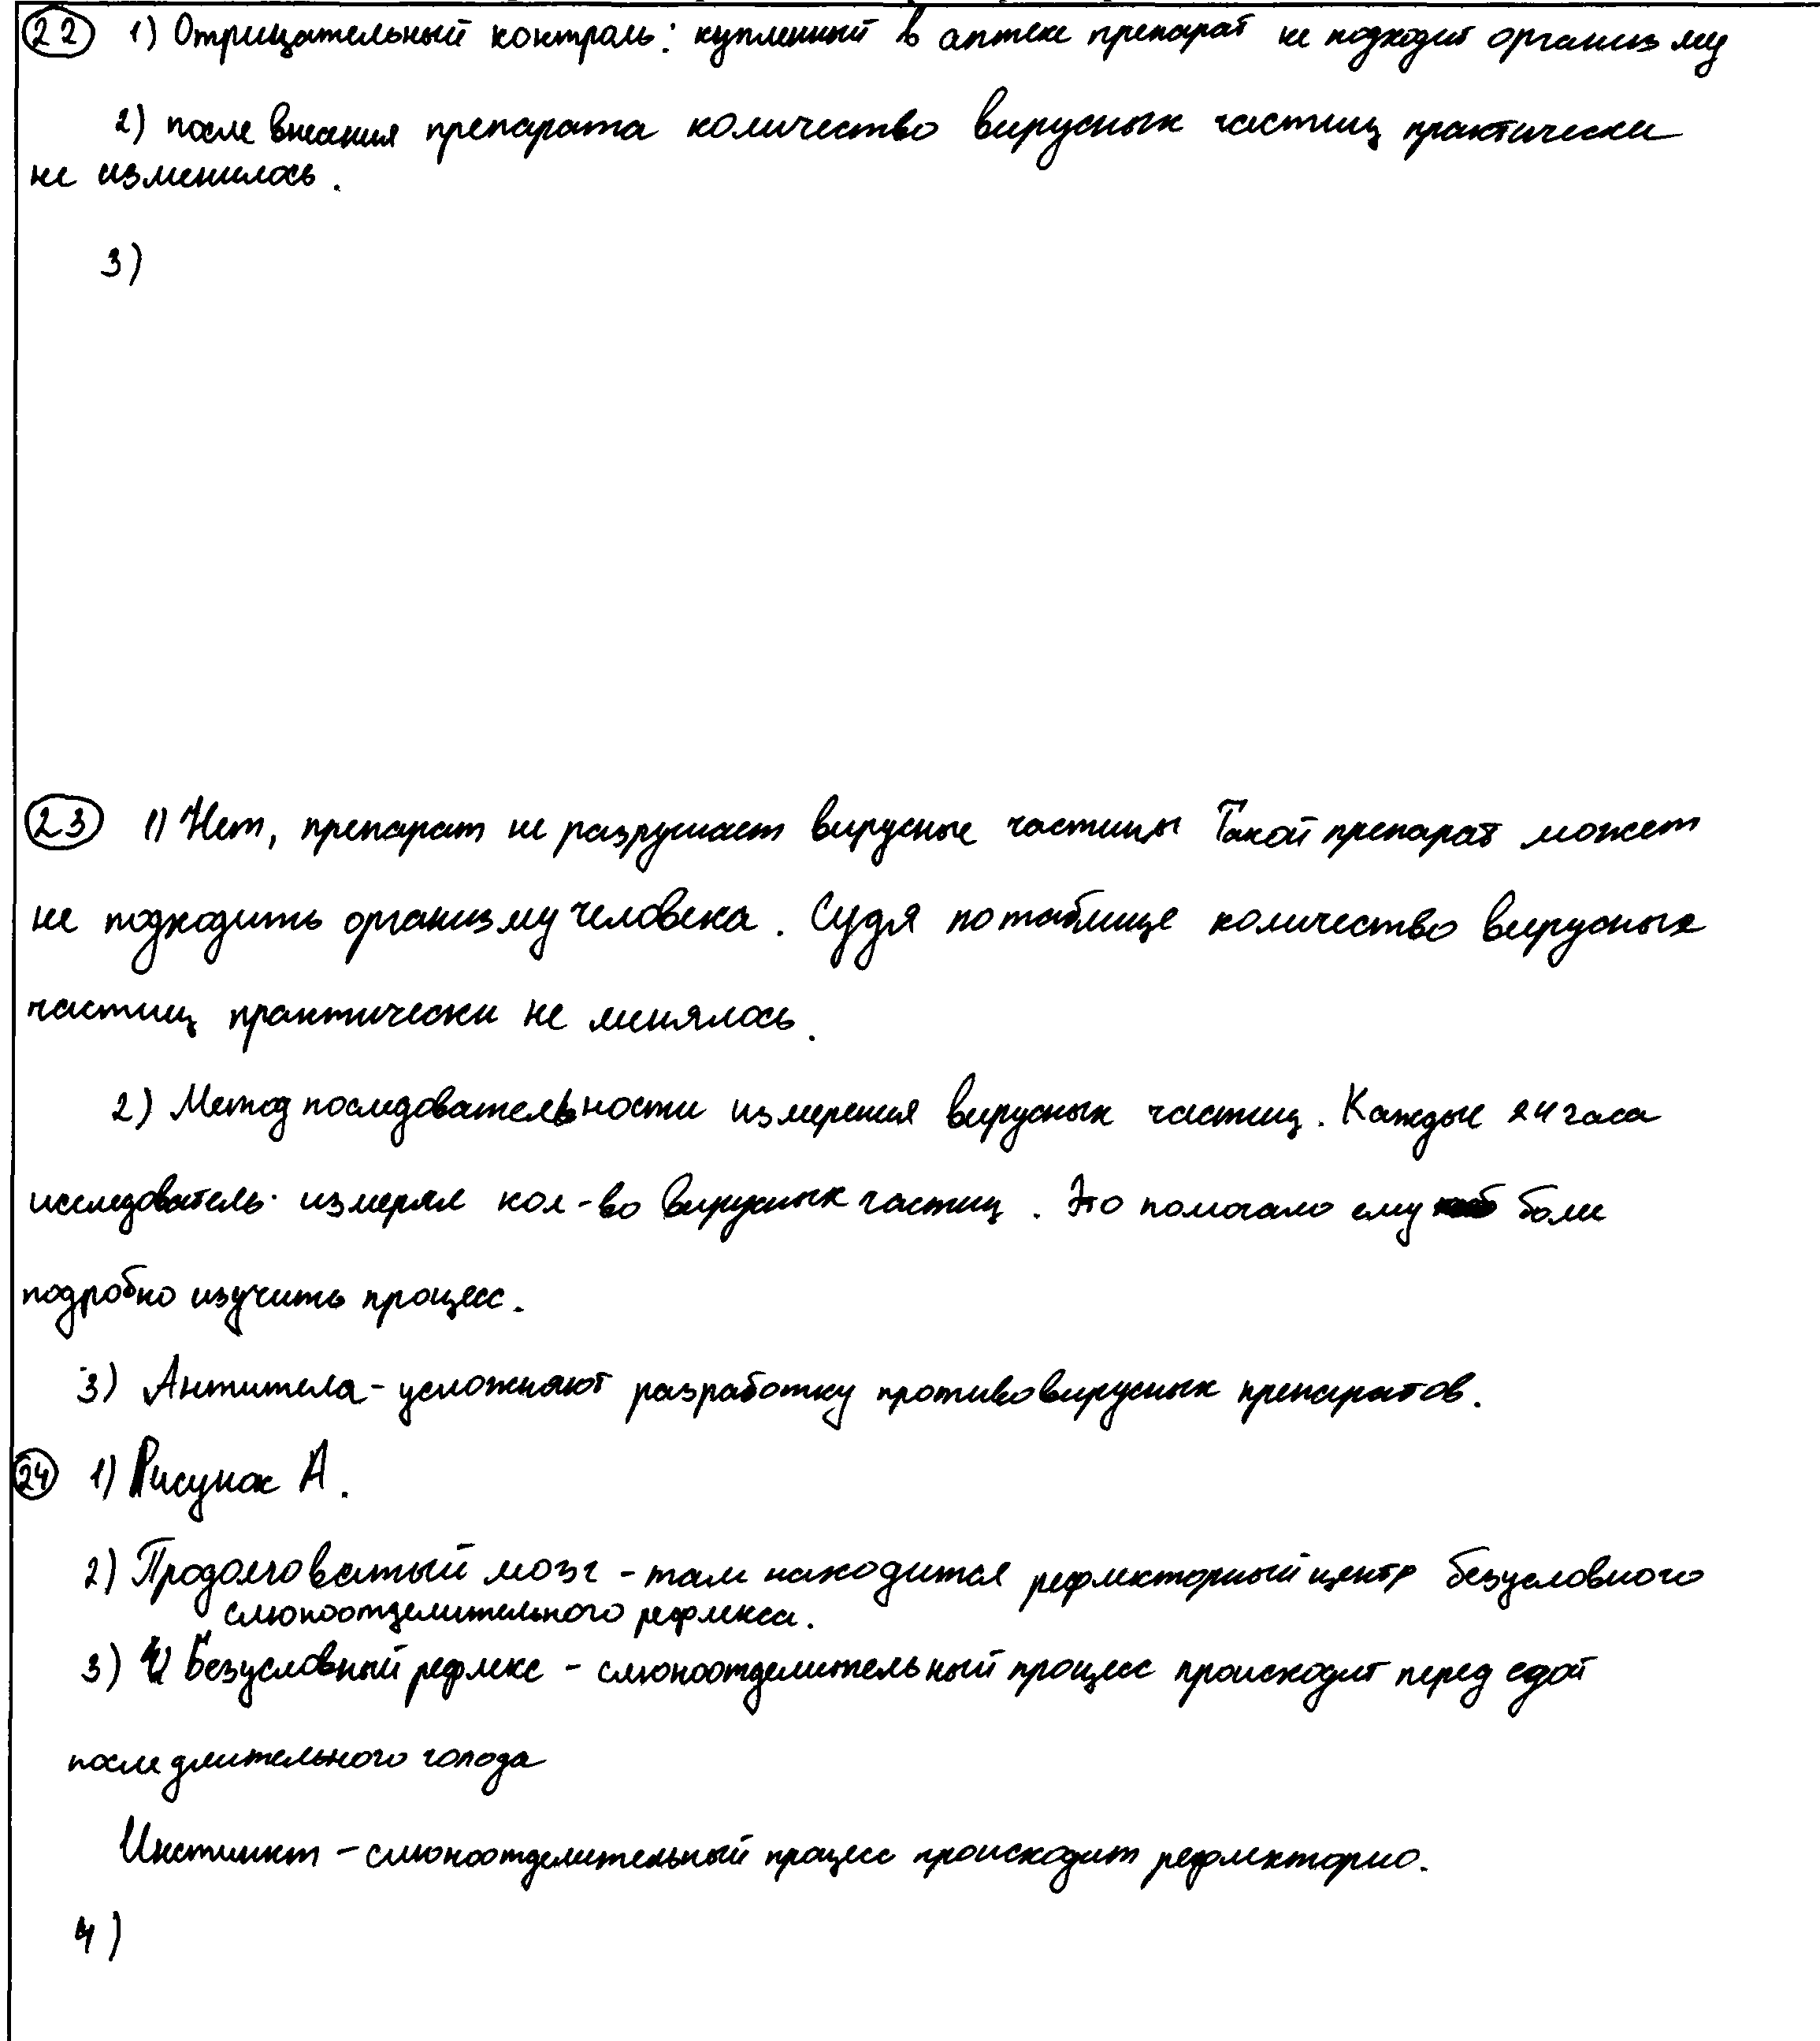 22 1) Отрицательный контроль: купленный в аптеке препарат не подходит организму
2) после внесения препарата количество вирусных частиц практически
не изменилось.
3)
23 1) Нет, препарат не разрушает вирусные частицы Такой препарат может
не подходить организму человека. Судя по таблице количество вирусных
частиц практически не менялось.
2) Метод последовательности измерения вирусных частиц. Каждые 24 часа
исследователь измерял кол-во вирусных частиц. Это помогало ему боле
подробно изучить процесс.
3) Антитела - усложняют разработку противовирусных препаратов.
24 1) Рисунок А.
2) Продолговатый мозг - там находится рефлекторный центр безусловного
слюноотделительного рефлекса.
3) Безусловный рефлекс - слюноотделительный процесс происходит перед едой
после длительного голода
Инстинкт - слюноотделительный процесс происходит рефлекторно.
4)